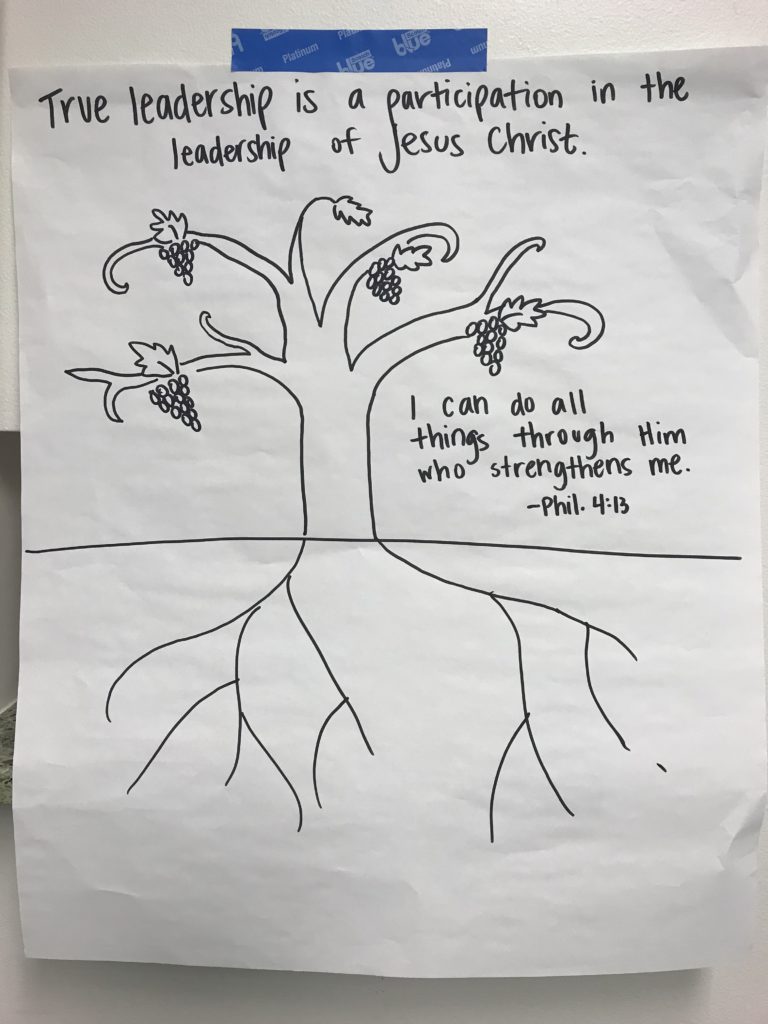 Platinum
blue
blue
Platinum
True leadership is a participation in the
leadership of Jesus Christ.
I can do all
things through Him
who strengthens me.
-Phil. 4:13